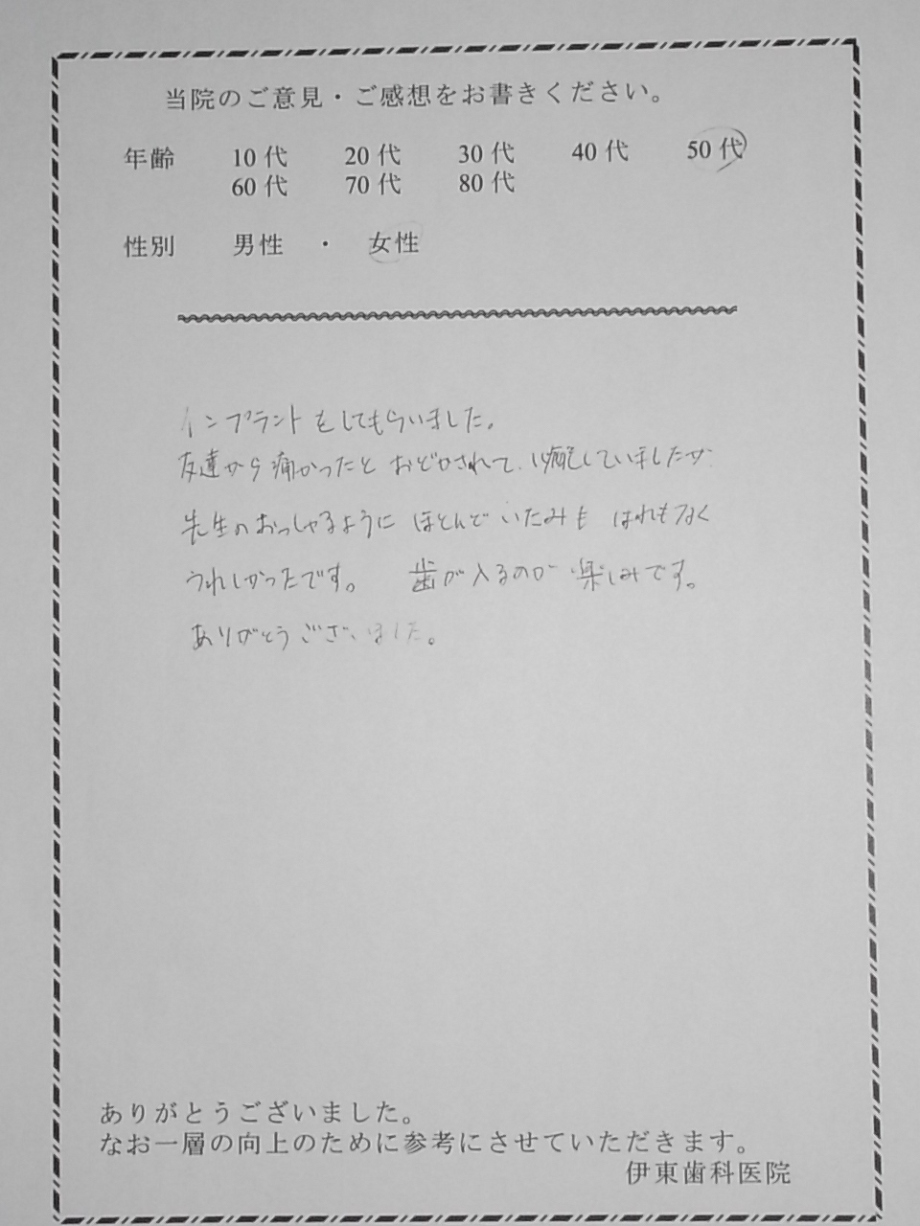 当院のご意見・ご感想をお書きください。
年齢 10代 20代 30代 40代 50代
60代 70代 80代
性別 男性 ・ 女性
インプラントをしてもらいました。
友達から痛かったと おどかされて、心配していましたが
先生のおっしゃるように ほとんど いたみも はれもなく
うれしかったです。 歯が入るのが 楽しみです。
ありがとうございました。
ありがとうございました。
なお一層の向上のために参考にさせていただきます。
伊東歯科医院